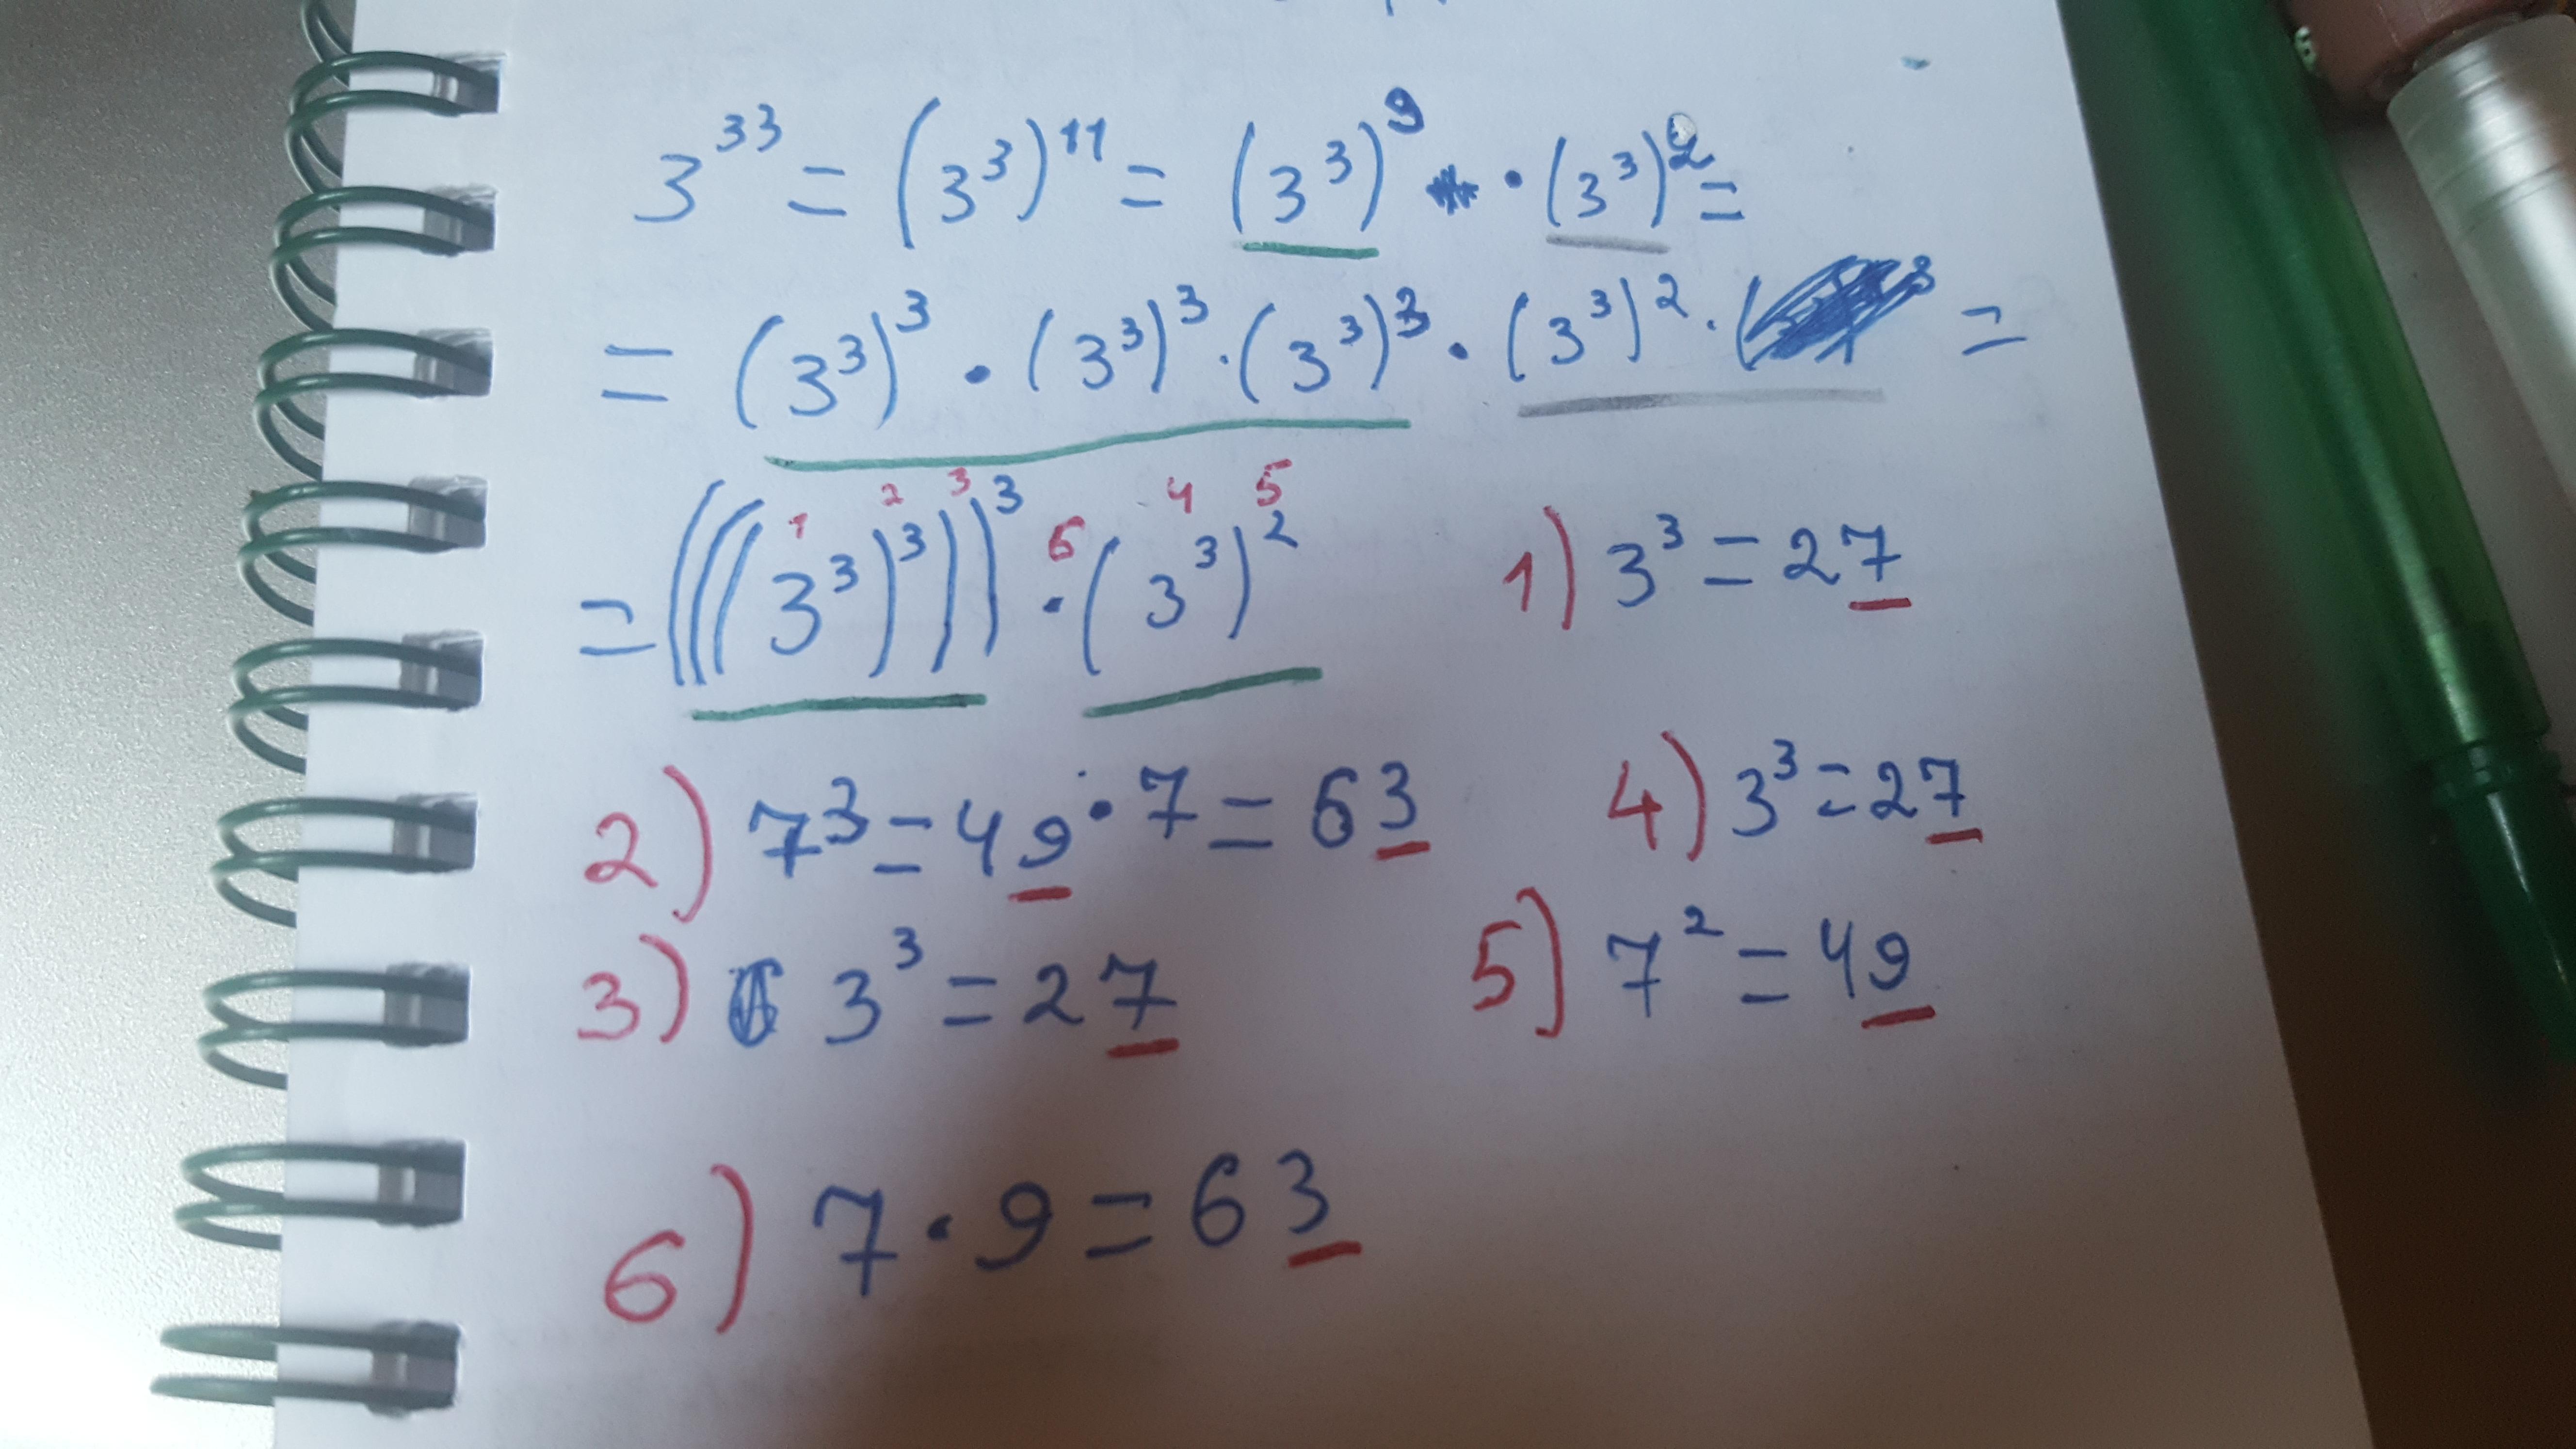 3³³ = (3³)¹¹ = (3³)⁹ · (3³)² =
= (3³)³ · (3³)³ · (3³)³ · (3³)² · ( ³ =
= (((3³)³))³ · (3³)²
1 2 3 6 4 5
1) 3³ = 27
2) 7³ = 49 · 7 = 63
4) 3³ = 27
3) 3³ = 27
5) 7² = 49
6) 7 · 9 = 63